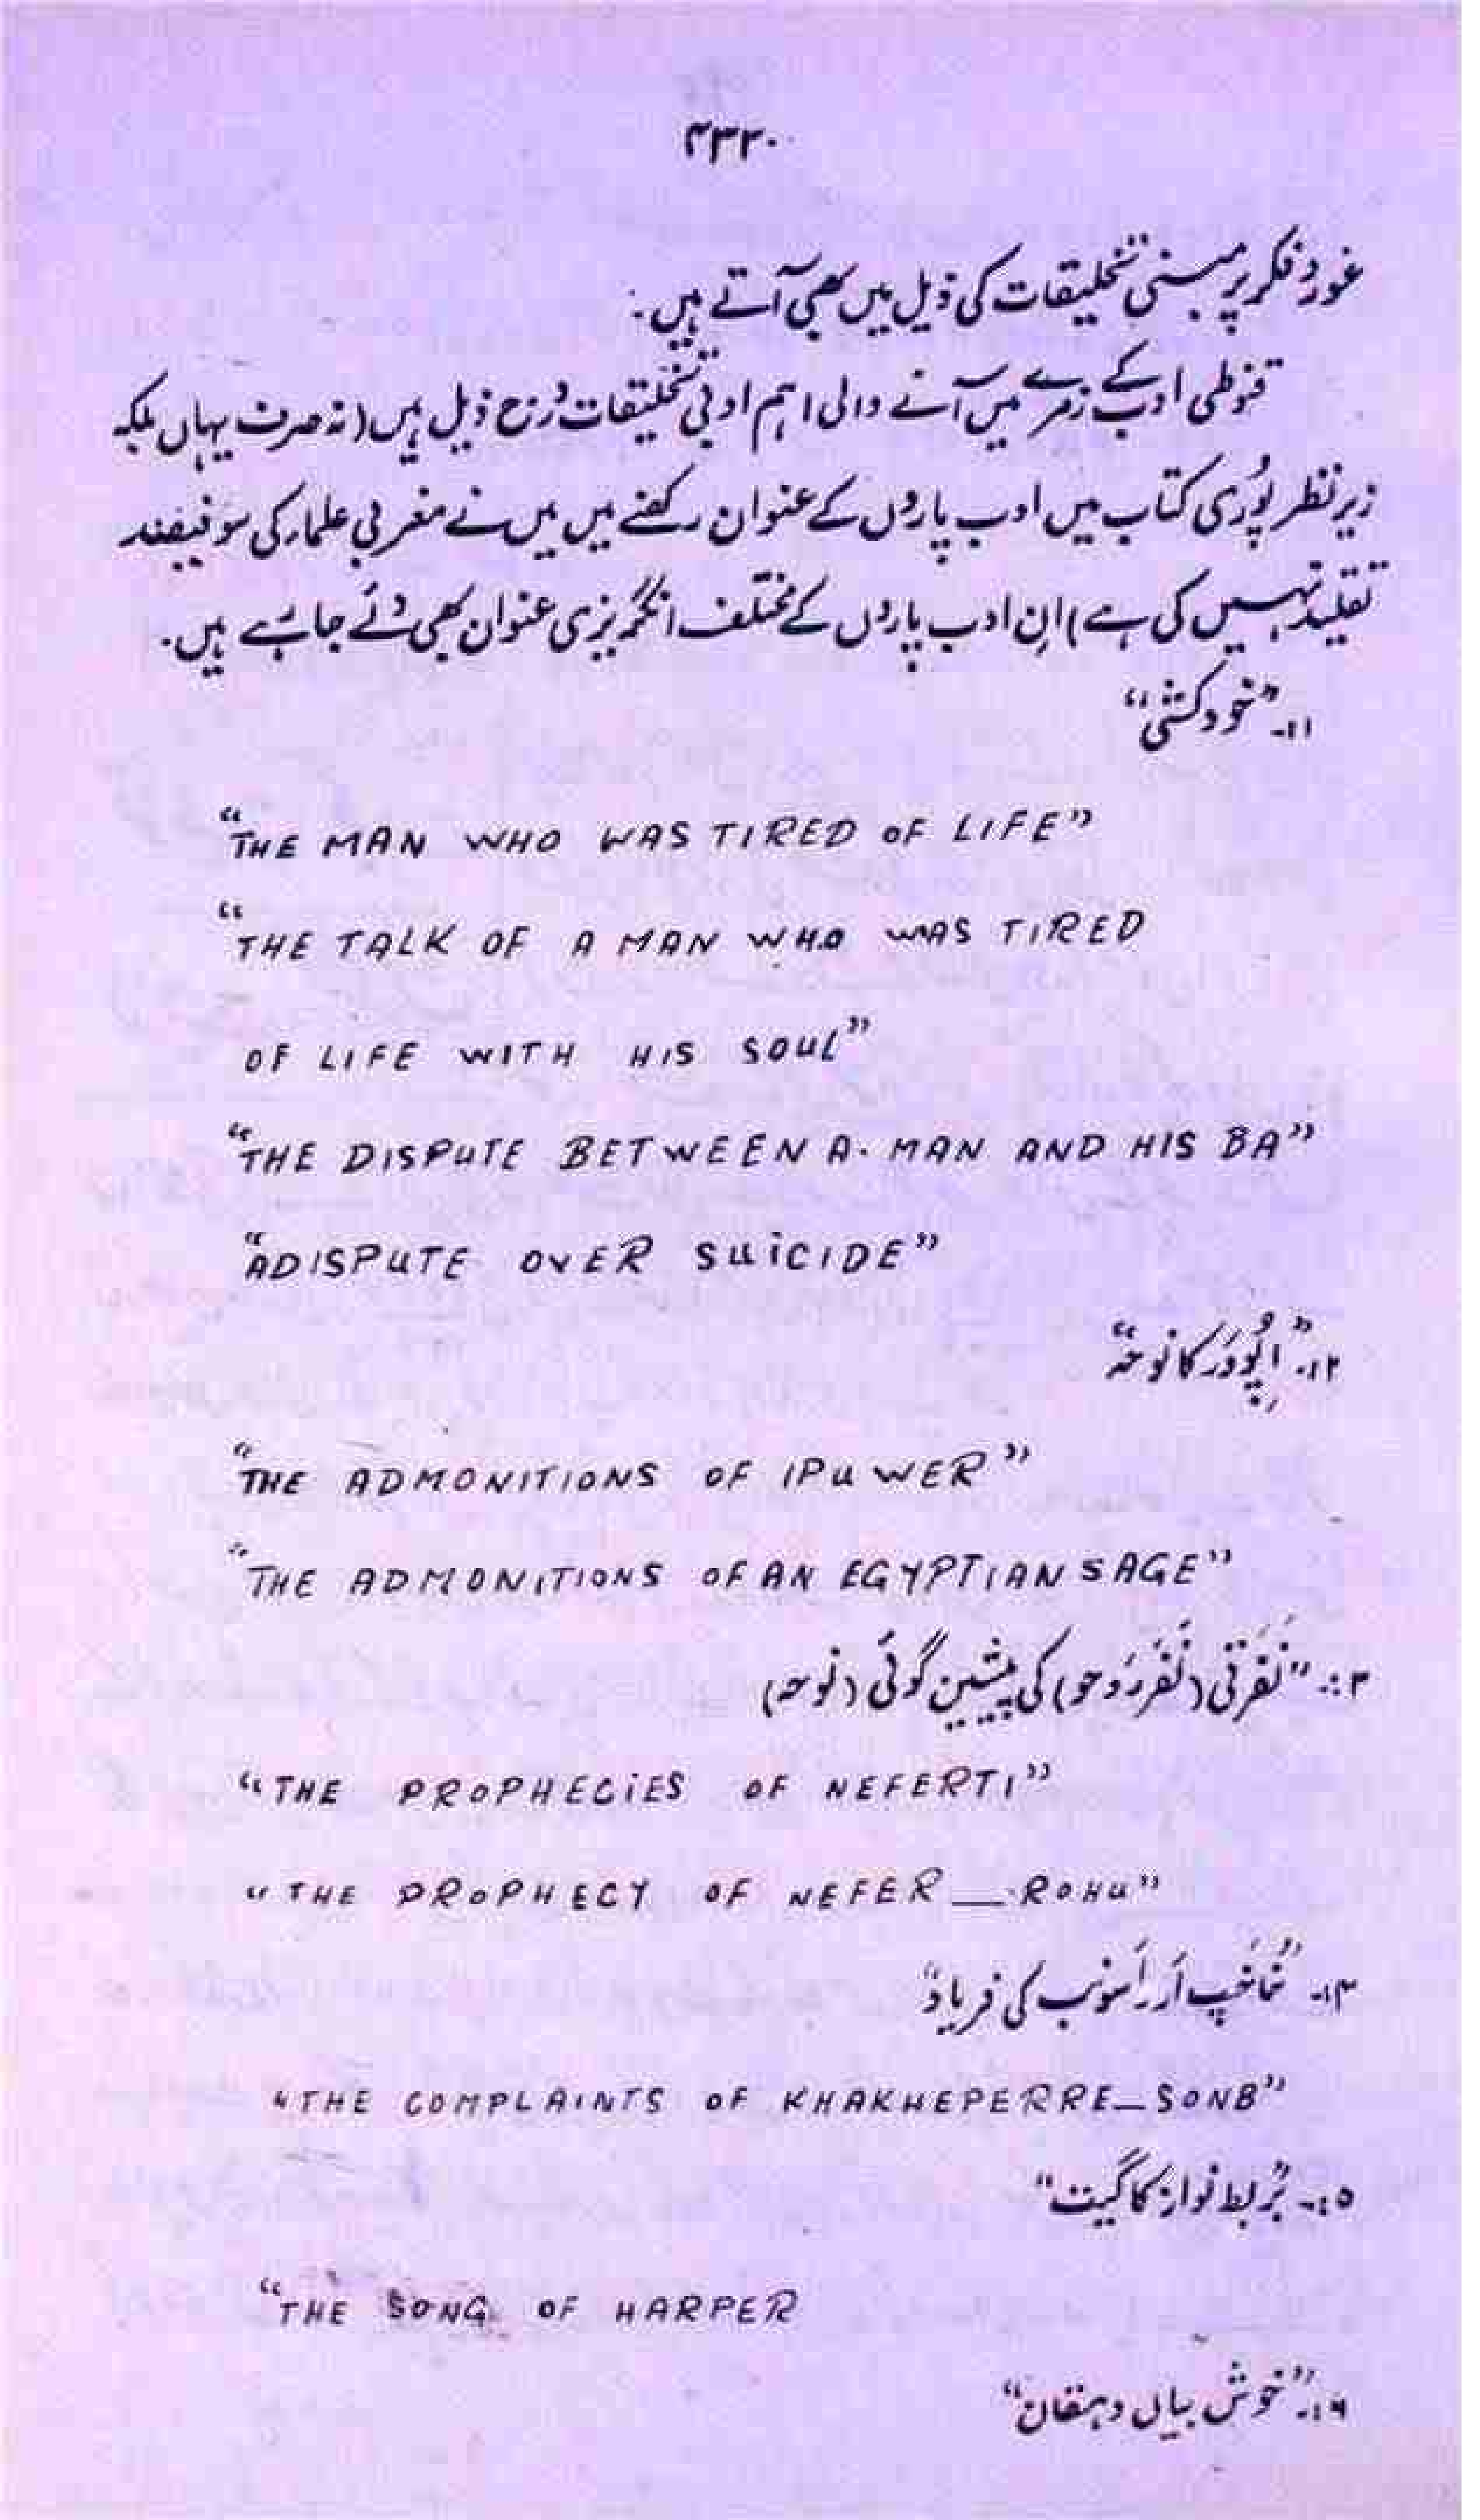 ۴۳۲
غور و فکر پر مبنی تخلیقات کی ذیل میں بھی آتے ہیں.
قنوطی ادب کے زمرے میں آنے والی اہم ادبی تخلیقات درج ذیل ہیں (نہ صرف یہاں بلکہ
زیر نظر پوری کتاب میں ادب پاروں کے عنوان رکھنے میں میں نے مغربی علماء کی سو فیصد
تقلید نہیں کی ہے) ان ادب پاروں کے مختلف انگریزی عنوان بھی دئے جا رہے ہیں.
۱۔ "خودکشی"
"THE MAN WHO WAS TIRED OF LIFE"
"THE TALK OF A MAN WHO WAS TIRED
OF LIFE WITH HIS SOUL"
"THE DISPUTE BETWEEN A. MAN AND HIS BA"
"A DISPUTE OVER SUICIDE"
۲۔ "اِپُووَر کا نوحہ"
"THE ADMONITIONS OF IPUWER"
"THE ADMONITIONS OF AN EGYPTIAN SAGE"
۳:۔ "نَفَرتی (نَفَررَوحو) کی پیشین گوئی (نوحہ)
"THE PROPHECIES OF NEFERTI"
"THE PROPHECY OF NEFER — ROHU"
۴:۔ کی فریاد"
"THE COMPLAINTS OF KHAKHEPERRE—SONB"
۵:۔ "بربط نواز کا گیت"
"THE SONG OF HARPER
۶:۔ "خوش بیاں دہقان"